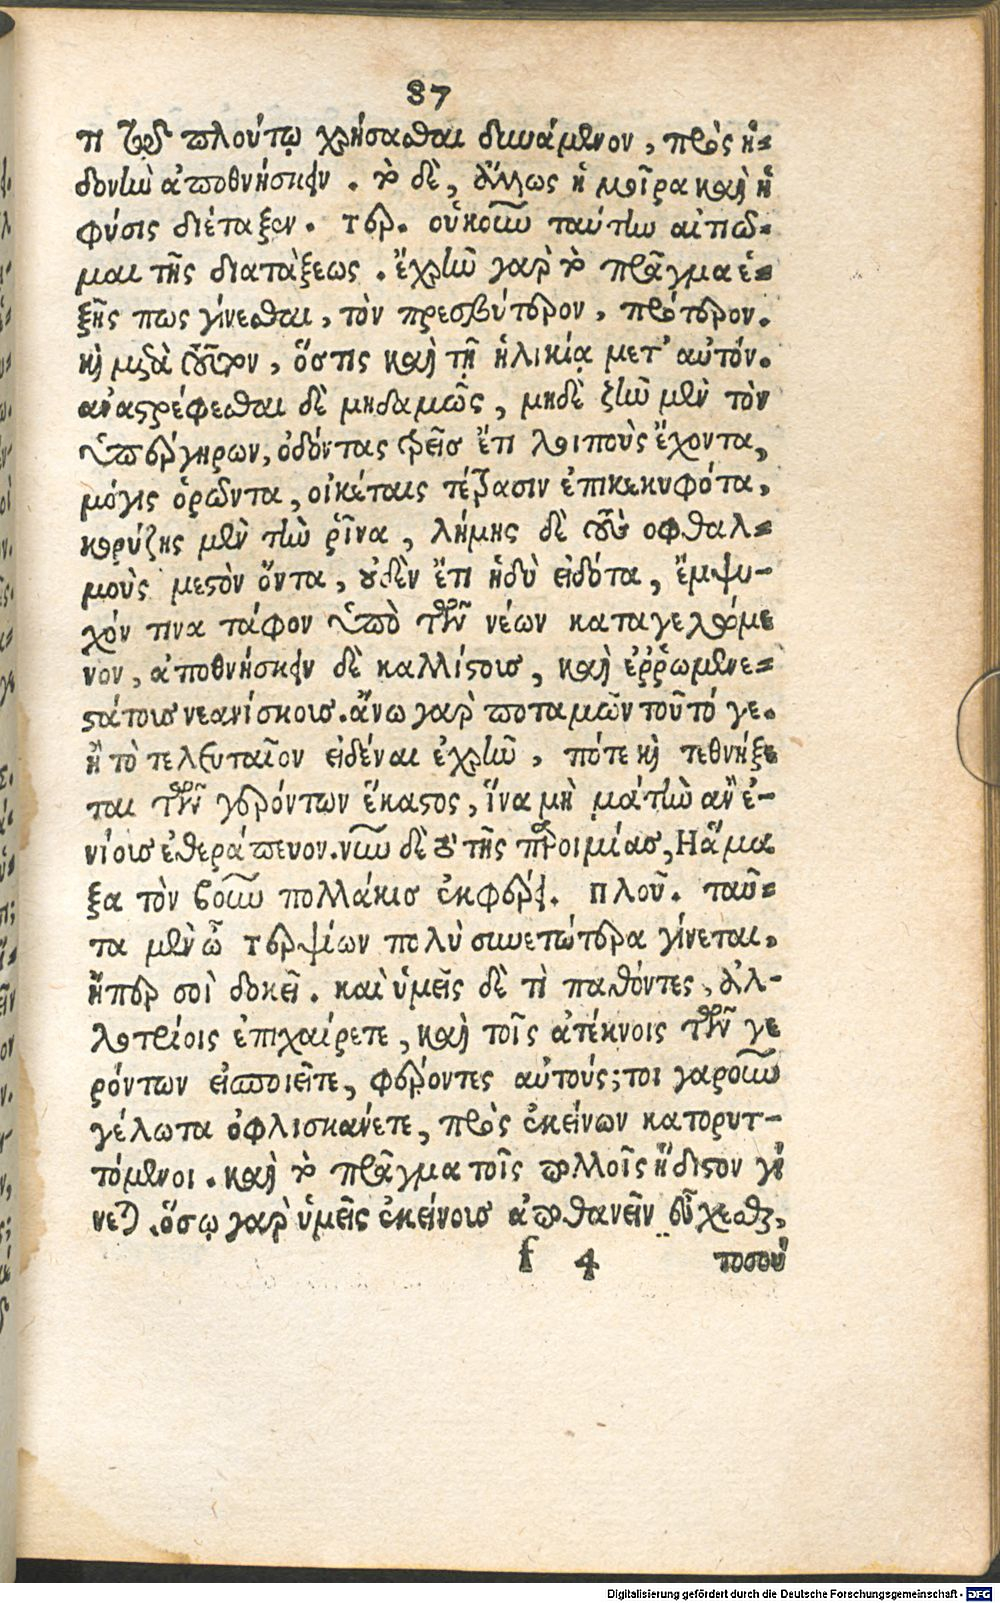 87
τι τῷ πλούτῳ χρήσασθαι δυνάμενον, πρὸς ἡ-
δονὴν ἀποθνήσκειν. τὸ δὲ, ἄλλως ἡ μοῖρα καὶ ἡ
φύσις διέταξεν. Τερ. οὐκοῦν ταύτην αἰτιῶ-
μαι τῆς διατάξεως. ἔχρην γὰρ τὸ πρᾶγμα ἑ-
ξῆς πως γίνεσθαι, τὸν πρεσβύτερον, πρότερον.
καὶ μετὰ τοῦτον, ὅστις καὶ τῇ ἡλικίᾳ μετ' αὐτόν.
ἀναστρέφεσθαι δὲ μηδαμῶς, μηδὲ ζῆν μὲν τὸν
ὑπέργηρων, ὀδόντας τρεῖς ἔτι λοιποὺς ἔχοντα,
μόγις ὁρῶντα, οἰκέταις τέτρασιν ἐπικεκυφότα,
κορύζης μὲν τὴν ῥῖνα, λήμης δὲ τοὺς οφθαλ-
μοὺς μεστὸν ὄντα, οὐδὲν ἔτι ἡδὺ εἰδότα, ἔμψυ-
χόν τινα τάφον ὑπὸ τῶν νέων καταγελώμε
νον, ἀποθνήσκειν δὲ καλλίστοις, καὶ ἐῤῥωμενε-
στάτοις νεανίσκοις. ἄνω γὰρ ποταμῶν τοῦτό γε.
ἢ τὸ τελευταῖον εἰδέναι ἐχρῆν, πότε καὶ τεθνήξε
ται τῶν γερόντων ἕκαστος, ἵνα μὴ μάτην ἂν ἐ-
νίοις ἐθεράπευον. νῦν δὲ τὸ τῆς παροιμίας, Η ἅμα
ξα τὸν βοῦν πολλάκις ἐκφέρει. Πλοῦ. ταῦ-
τα μὲν ὦ Τερψίων πολὺ συνετώτερα γίνεται,
ἤπερ σοὶ δοκεῖ. καὶ ὑμεῖς δὲ τὶ παθόντες, ἀλ-
λοτρίοις ἐπιχαίρετε, καὶ τοῖς ἀτέκνοις τῶν γε
ρόντων εἰσποιεῖτε, φέροντες αὑτούς; τοι γαροῦν
γέλωτα ὀφλισκάνετε, πρὸς ἐκείνων κατορυτ-
τόμενοι. καὶ τὸ πρᾶγμα τοῖς πολλοῖς ἥδιστον γί
νεται. ὅσῳ γὰρ ὑμεῖς ἐκείνοις ἀποθανεῖν εὔχεσθε,
f 4 τοσού